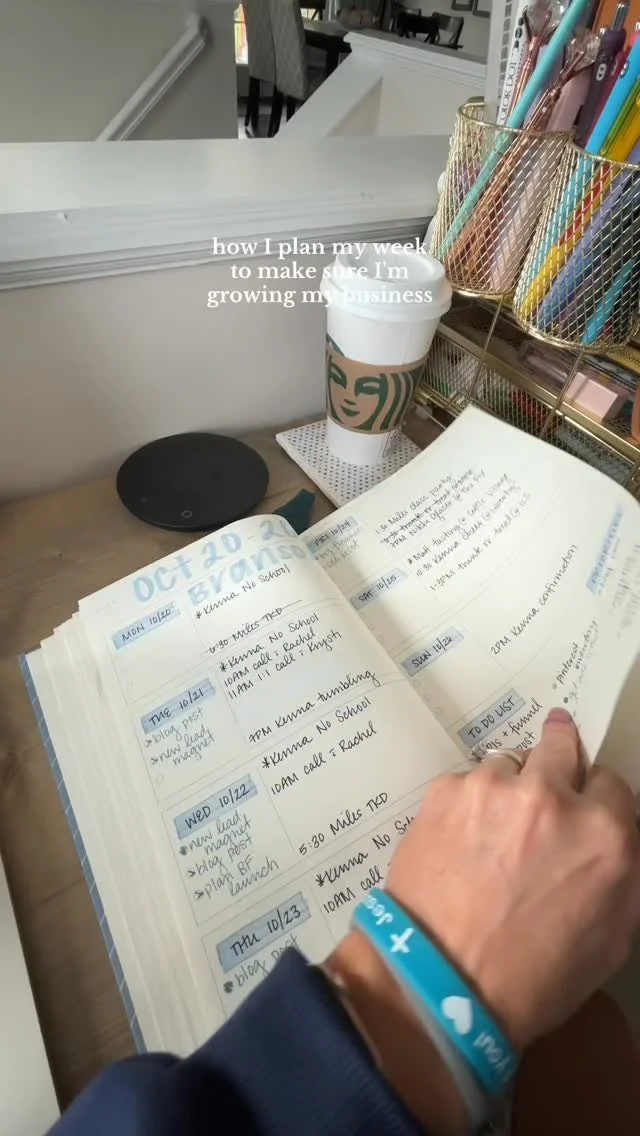 how I plan my week
to make sure I'm
growing my business
COLOR DOT
OCT 20 - 2
Branso
MON 10/20
*Kenna No School
6:30 Miles TKD
TUE 10/21
> blog post
> new lead
magnet
*Kenna No School
10AM call : Rachel
11AM 1:1 call : Krysti
7PM Kenna tumbling
WED 10/22
new lead
magnet
> blog post
> plan BF
launch
*Kenna No School
10AM call : Rachel
5:30 Miles TKD
THU 10/23
blog post
*Kenna No Sch
10AM call
FRI 10/24
1:30 Miles class party
SAT 10/25
10:30 Kenna cheer @
1-3PM trunk or treat @
SUN 10/26
2PM Kenna confirmation
TO DO LIST
+ funnel
post
Pinterest
Jes
you!